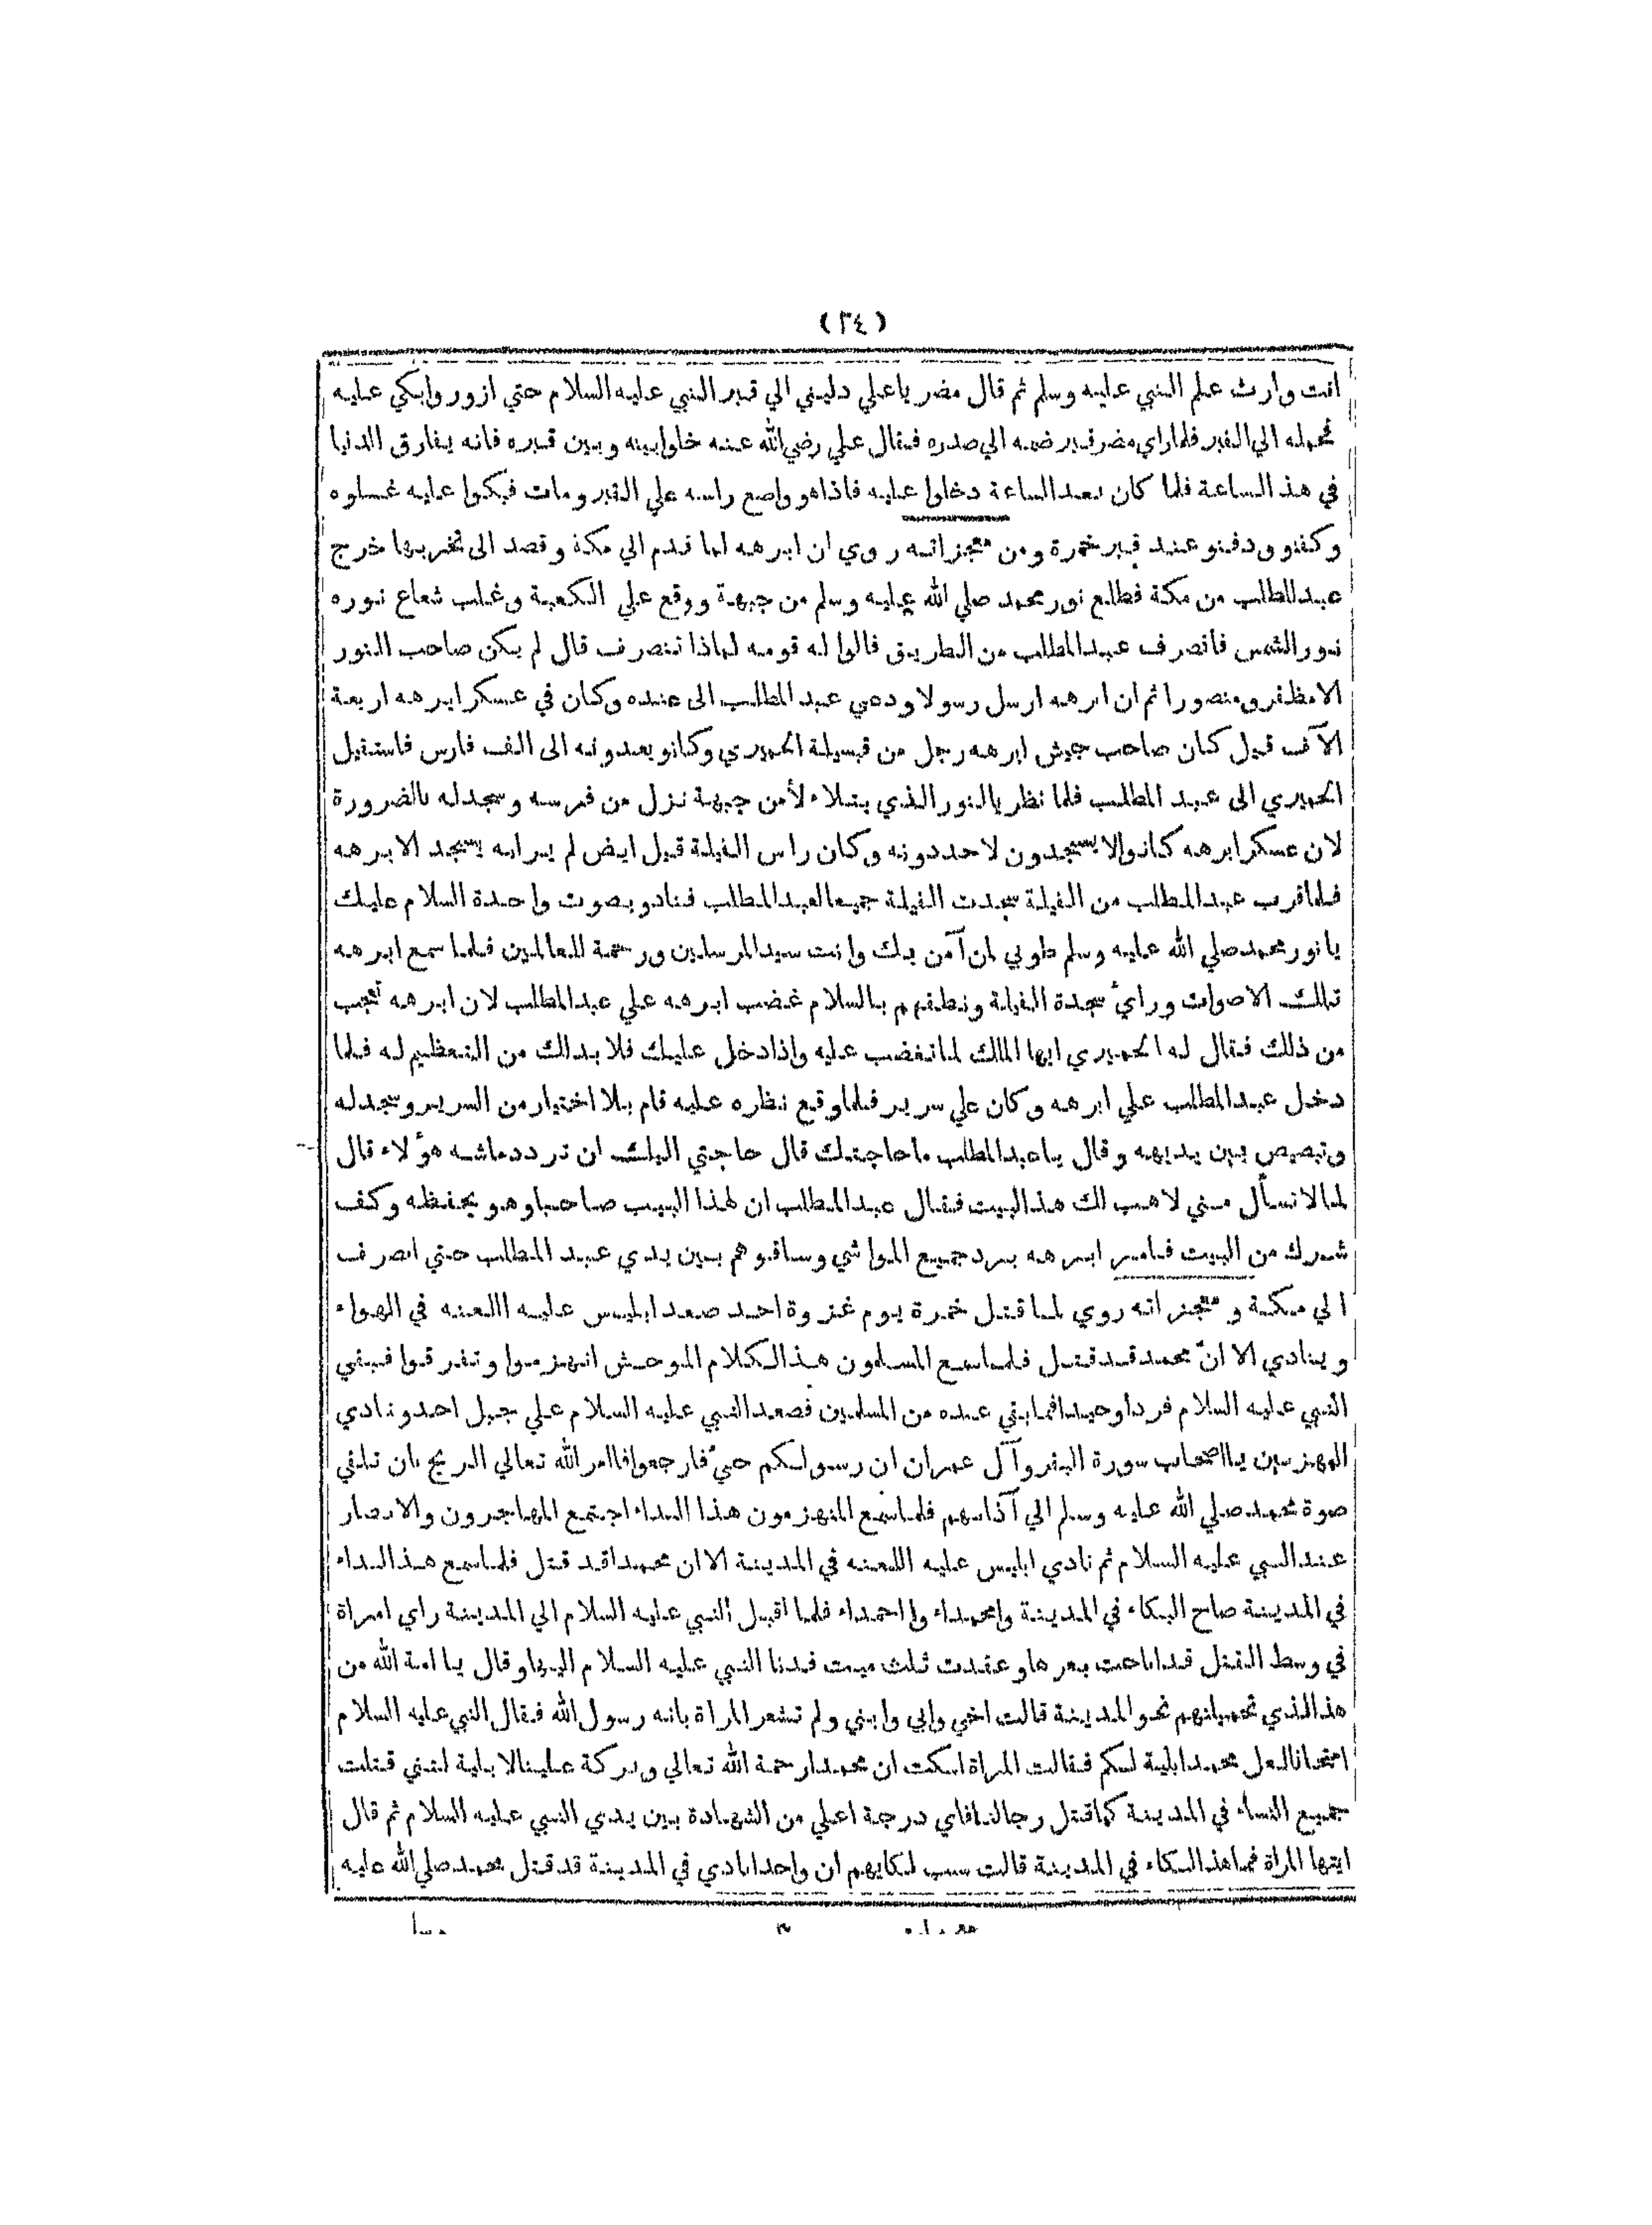 (٣٤)
انت وارث علم النبي عليه وسلم ثم قال مضر ياعلي دليني الي قبر النبي عليه السلام حتي ازور وابكي عليه
فحمله الي القبر فلماراي مضر قبر ضمه الي صدره فقال علي رضي الله عنه خلوابينه وبين قبره فانه يفارق الدنيا
في هذ الساعة فلما كان بعد الساعة دخلوا عليه فاذاهو واضع راسه علي القبر ومات فبكوا عليه غسلوه
وكفنو ودفنو عند قبر حمزة ومن معجزاته روي ان ابرهه لما قدم الي مكة وقصد الى تخريبها خرج
عبدالمطلب من مكة فطلع نور محمد صلي الله عليه وسلم من جبهة ووقع علي الكعبة وغلب شعاع نوره
نور الشمس فانصرف عبدالمطلب من الطريق فالوا له قومه لماذا تنصرف قال لم يكن صاحب النور
الا مظفر ومنصورا ثم ان ابرهه ارسل رسولا ودعي عبد المطلب الى عنده وكان في عسكر ابرهه اربعة
الآف قيل كان صاحب جيش ابرهه رجل من قبسيلة الحميري وكانو يعدونه الى الف فارس فاستقبل
الحميري الى عبد المطلب فلما نظر يالنور الذي يتلاء لأمن جبهة نزل من فرسه وسجدله بالضرورة
لان عسكر ابرهه كانوالا يسجدون لاحددونه وكان راس الفيلة قبل ايض لم يرابه يسجد الا برهه
فلماقرب عبدالمطلب من الفيلة سجدت الفيلة جميعالعبدالمطلب فنادو بصوت واحدة السلام عليك
يانور محمدصلي الله عليه وسلم طوبي لمن آمن بك وانت سيدالمرسلين ورحمة للعالمين فلما سمع ابرهه
تلك الاصوات وراي سجدة الفيلة ونطقهم بالسلام غضب ابرهه علي عبدالمطلب لان ابرهه تعجب
من ذلك فقال له الحميري ايها الملك لماتغضب عليه واذادخل عليك فلا بدالك من التعظيم له فلما
دخل عبدالمطلب علي ابرهه وكان علي سرير فلماوقع نظره عليه قام بلا اختيار من السرير وسجدله
وتبصبص بين يديهه وقال ياعبدالمطلب ماحاجتك قال حاجتي اليك ان تردد ماشه هؤلاء قال
لمالا تسأل مني لاهب لك هذالبيت فقال عبدالمطلب ان لهذا البيب صاحباوهو يحفظه وكف
شرك من البيت فامر ابرهه برد جميع المواشي وساقوهم بين يدي عبد المطلب حتي انصرف
الي مكة و معجزاته روي لما قتل حمزة يوم غزوة احد صعد ابليس عليه االعنه في الهواء
وينادي الا انّ محمد قد قتل فلماسمع المسلمون هذالكلام الموحش انهزموا وتفرقوا فبقي
النبي عليه السلام فرداوحيدافمابقي عنده من المسلمين فصعدالنبي عليه السلام علي جبل احدونادي
المهنزمين يااصحاب سورة البقرواآل عمران ان رسولكم حيّ فارجعوافاامر الله تعالي الريح بان تلقي
صوة محمد صلي الله عليه وسلم الي آذانهم فلماسمع المنهزمون هذا النداء اجتمع المهاجرون والانصار
عندالنبي عليه السلام ثم نادي ابليس عليه اللعنه في المدينة الا ان محمداقد قتل فلماسمع هذالنداء
في المدينة صاح البكاء في المدينة وامحمداء وااحمداء فلما اقبل النبي عليه السلام الي المدينة راي امراة
في وسط القتل قداناحت بعرهاو عقدت ثلث ميت فدنا النبي عليه السلام اليهاوقال يا امة الله من
هذالذي تحميلنهم نحو المدينة قالت اخي وابي وابني ولم تشعر المراة بانه رسول الله فقال النبي عليه السلام
امتحانالعل محمدابلية لكم فقالت المراة اسكت ان محمدارحمة الله تعالي وبركة علينالابلية لنني قتلت
جميع النساء في المدينة كماقتل رجالنافاي درجة اعلي من الشهادة بين يدي النبي عليه السلام ثم قال
ايتها المراة فماهذالبكاء في المدينة قالت سبب لبكايهم ان واحدانادي في المدينة قدقتل محمد صلي الله عليه